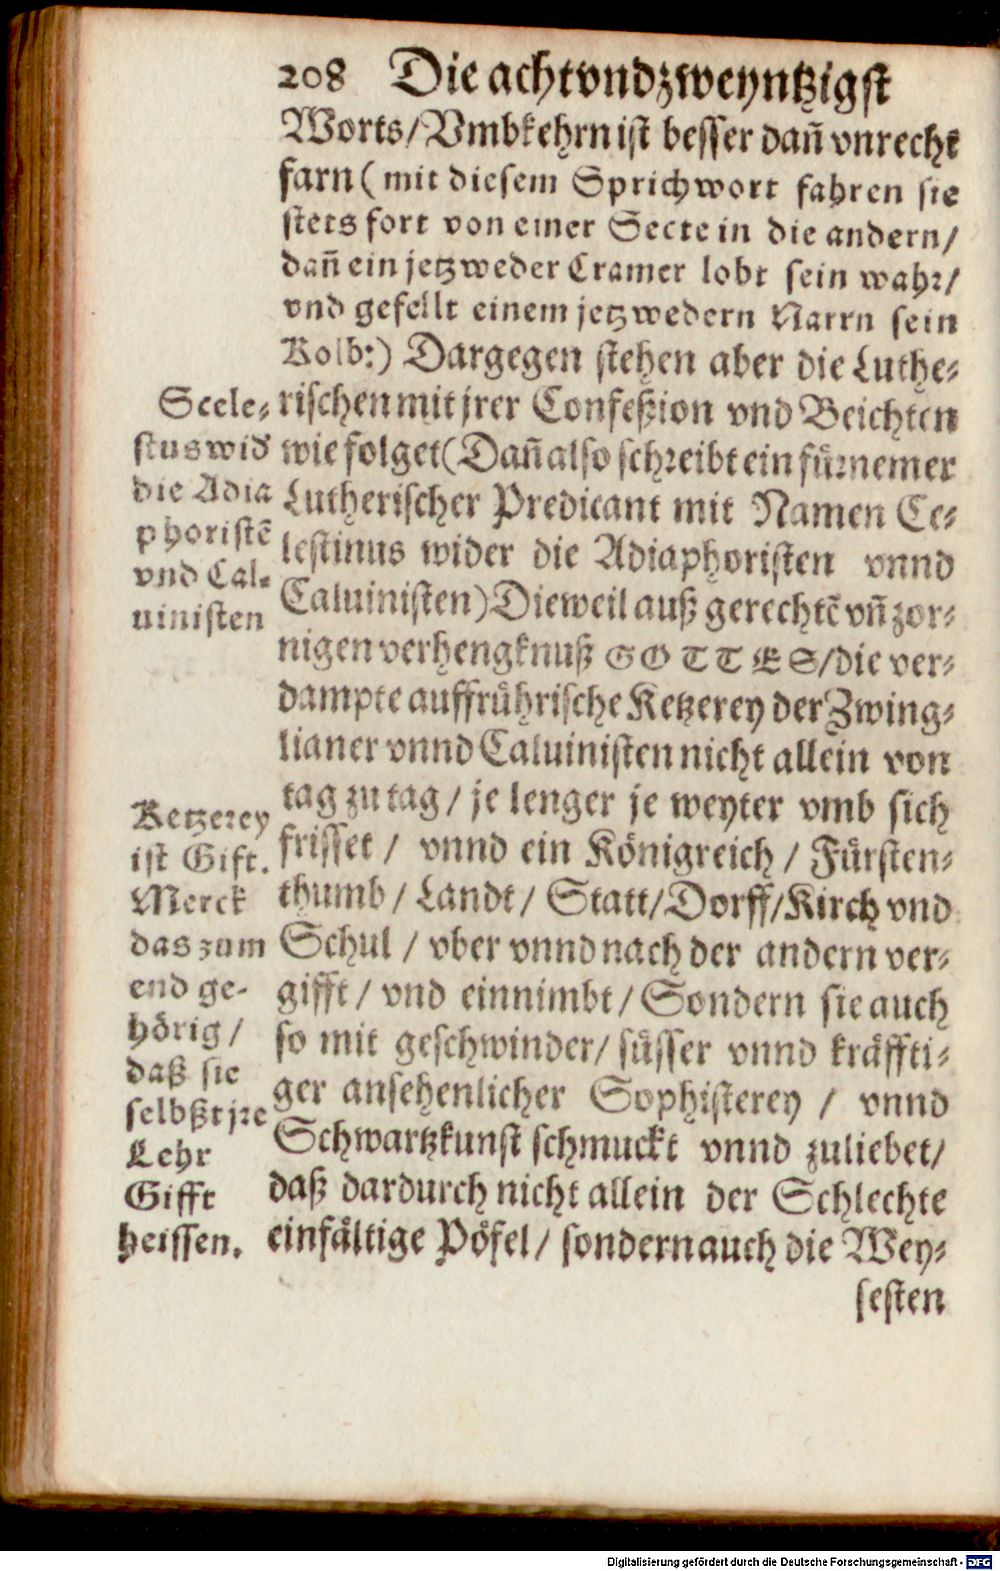 208 Die achtvndzweyntzigst
Worts/Vmbkehrn ist besser dañ vnrecht
farn (mit diesem Sprichwort fahren sie
stets fort von einer Secte in die andern/
dañ ein jetzweder Cramer lobt sein wahr/
vnd gefellt einem jetzwedern Narrn sein
Kolb:) Dargegen stehen aber die Luthe-
rischen mit jrer Confeßion vnd Beichten
wie folget (Dañ also schreibt ein fürnemer
Lutherischer Predicant mit Namen Ce-
lestinus wider die Adiaphoristen vnnd
Caluinisten) Dieweil auß gerechtẽ vñ zor-
nigen verhengknuß GOTTES/die ver-
dampte auffrührische Ketzerey der Zwing-
lianer vnnd Caluinisten nicht allein von
tag zu tag / je lenger je weyter vmb sich
frisset / vnnd ein Königreich / Fürsten-
thumb / Landt / Statt/Dorff/Kirch vnd
Schul / vber vnnd nach der andern ver-
gifft / vnd einnimbt / Sondern sie auch
so mit geschwinder/ süsser vnnd kräffti-
ger ansehenlicher Sophisterey / vnnd
Schwartzkunst schmuckt vnnd zuliebet/
daß dardurch nicht allein der Schlechte
einfältige Pöfel / sondern auch die Wey-
sesten
Scele-
stus wid
die Adia
phoristẽ
vnd Cal-
uinisten
Ketzerey
ist Gift.
Merck
das zum
end ge-
hörig /
daß sie
selbßt jre
Lehr
Gifft
heissen.
Digitalisierung gefördert durch die Deutsche Forschungsgemeinschaft - DFG